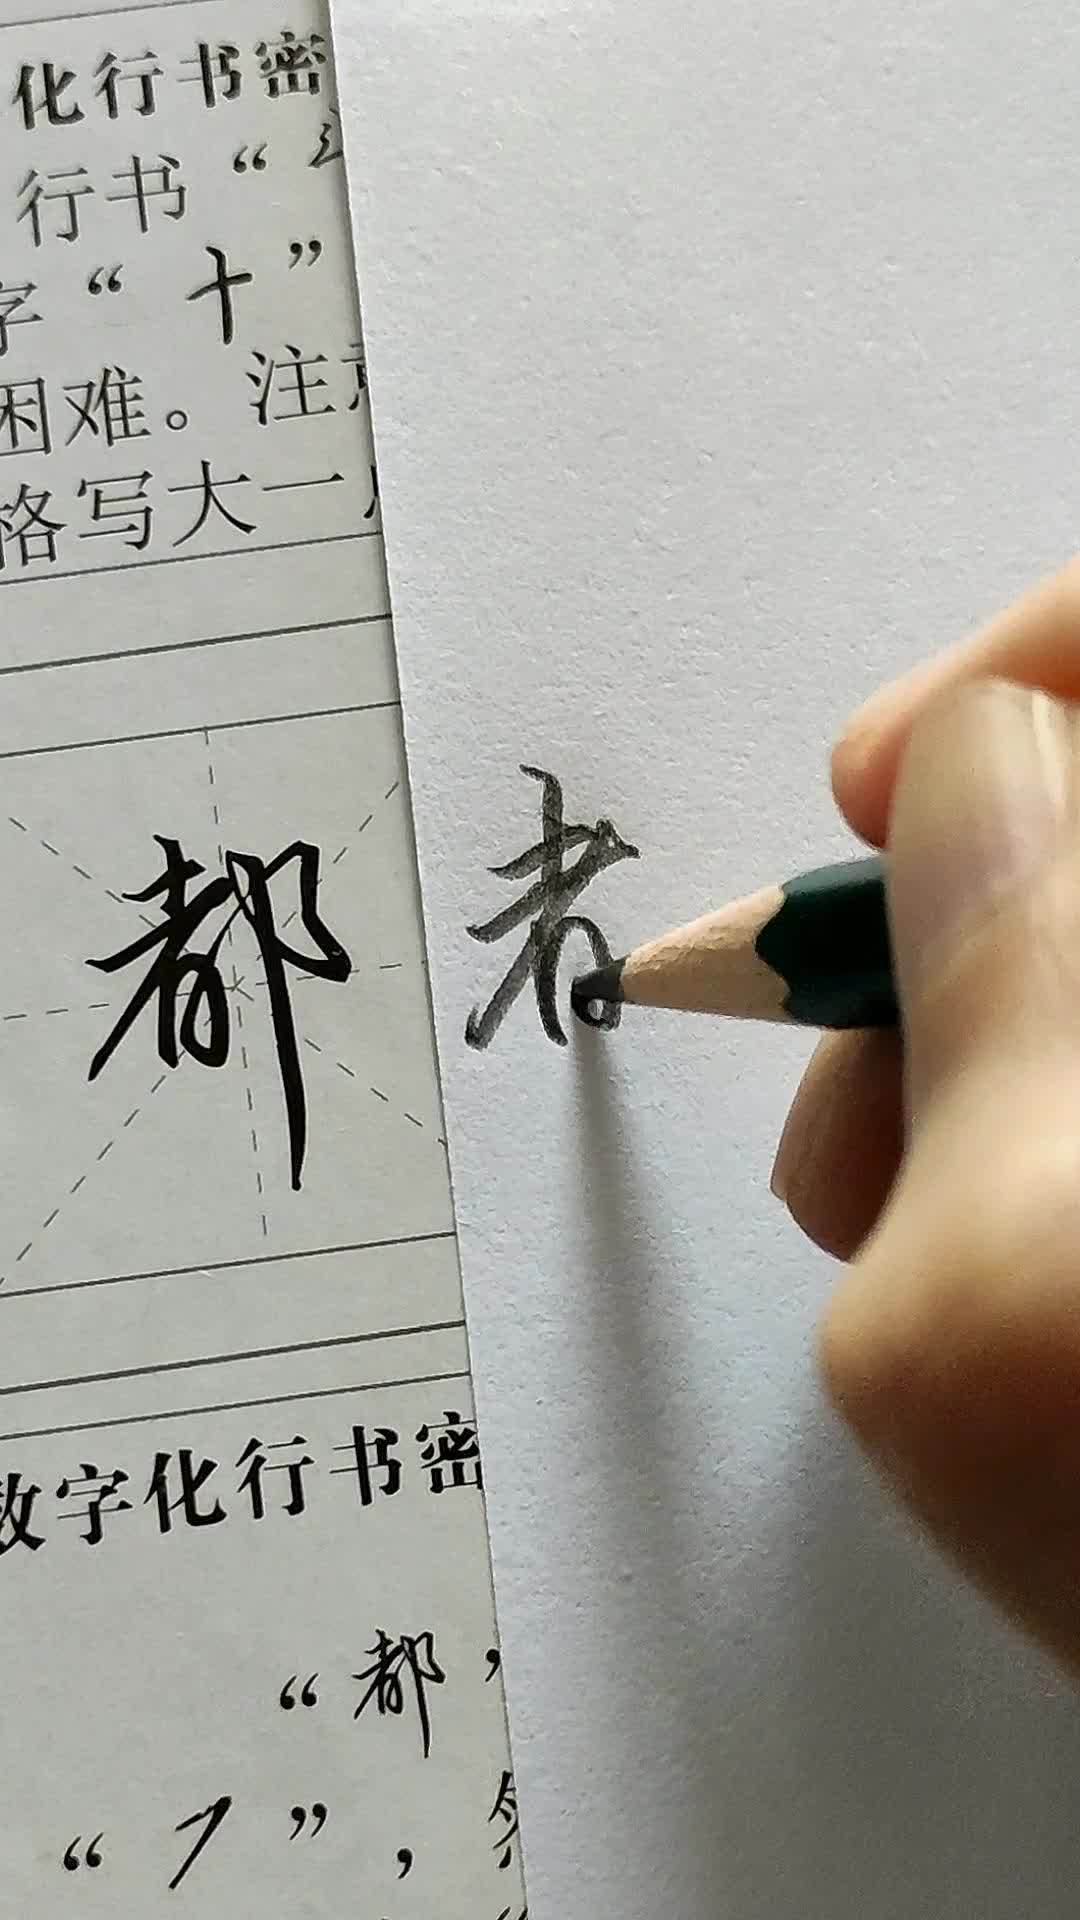 化行书密
行书“
字“十”
困难。注意
格写大一
都
者
数字化行书密
“都”
“7”，